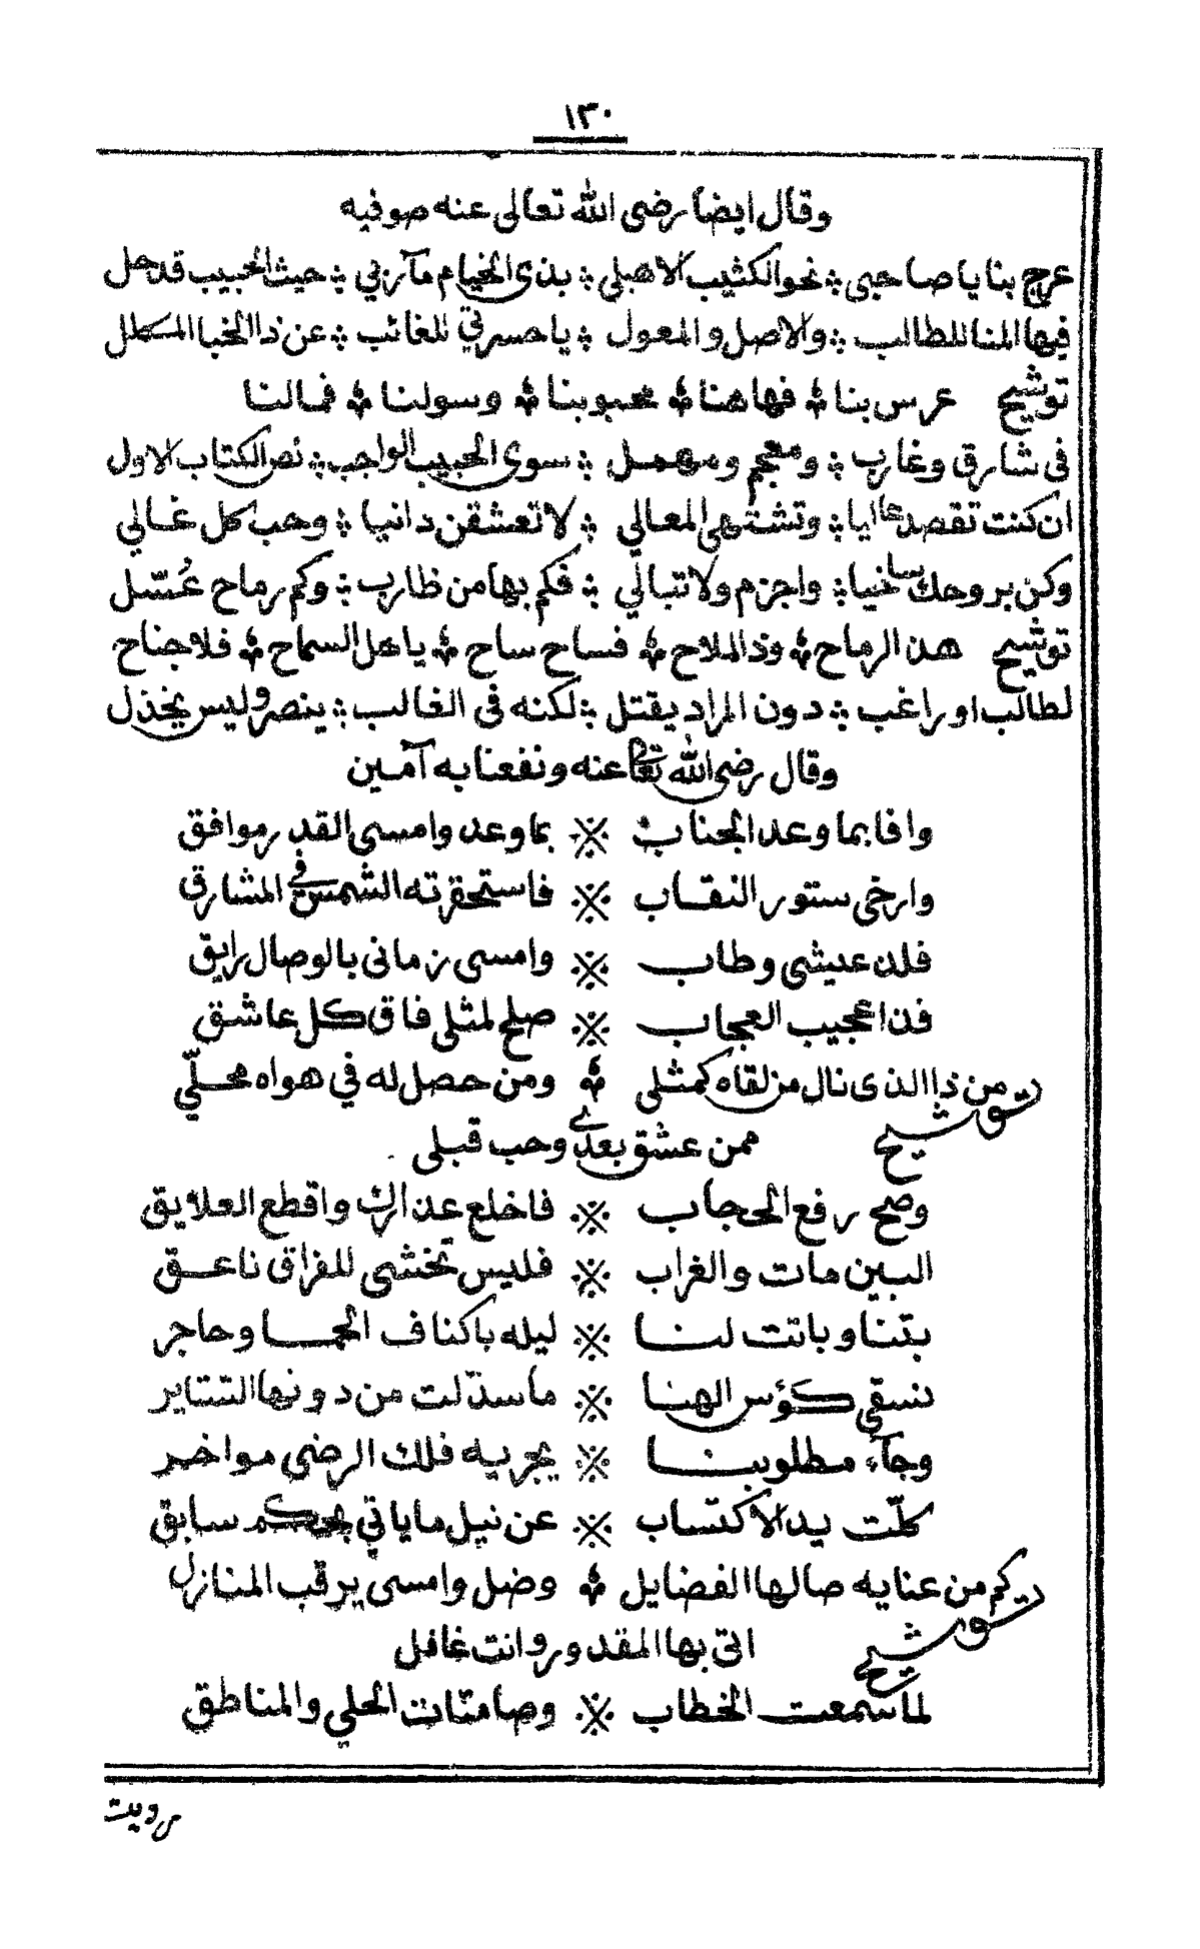 ١٣٠
وقال ايضا رضى الله تعالى عنه صوفيه
عرج بنا يا صاحبى ؞ نحو الكثيب الاهيلى ؞ بذى الخيام مآربي ؞ حيث الحبيب قد حل
فيها المنا للطالب ؞ والاصل والمعول ؞ يا حسرتي للغائب ؞ عن ذا الخبا المكلل
توشيح عرس بنا ؞ فها هنا ؞ محبوبنا ؞ وسولنا ؞ فمالنا
فى شارق وغارب ؞ ومعجم ومهمل ؞ سوى الحبيب الواجب ؞ نص الكتاب الاول
ان كنت تقصد عاليا ؞ وتشتهى المعالي ؞ لا تعشقن دانيا ؞ وهب كل غالي
وكن بروحك ساخيا ؞ واجزم ولا تبالي ؞ فكم بها من ظارب ؞ وكم رماح عُسّل
توشيح هذ الرماح ؞ وذ الملاح ؞ فساح ساح ؞ ياهل السماح ؞ فلا جناح
لطالب او راغب ؞ دون المراد يقتل ؞ لكنه فى الغالب ؞ ينصر وليس يخذل
وقال رضى الله تعالى عنه ونفعنا به آمين
وافا بما وعد الجناب ※ بما وعد وامسى القدر موافق
وارخى ستور النقاب ※ فاستحقرته الشمس في المشارق
فلذ عيشى وطاب ※ وامسى زمانى بالوصال رايق
فذ اعجيب العجاب ※ صلح لمثلى فاق كل عاشق
توشيح من ذا الذى نال من لقاه كمثلى ؞ ومن حصل له في هواه محلّي
ممن عشق بعدي وحب قبلى
وصح رفع الحجاب ※ فاخلع عذارك واقطع العلايق
البين مات والغراب ※ فليس تخشى للفراق ناعق
بتنا وباتت لنا ※ ليله باكناف الحما وحاجر
نسقى كؤس الهنا ※ ما سدّلت من دونها التتاير
وجآء مطلوبنا ※ يجريه فلك الرضى مواخر
كلّت يد الاكتساب ※ عن نيل ما ياتي بحكم سابق
توشيح كم من عنايه صالها الفضايل ؞ وضل وامسى يرقب المنازل
اتى بها المقدور وانت غافل
لما سمعت الخطاب ※ وصامتات الحلي والمناطق
رويت